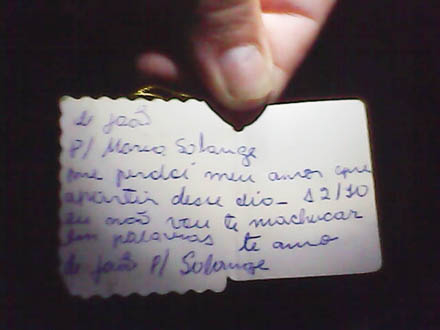 de João
P/ Maria Solange
me perdoi meu amor que
apartir desse dia - 12/10
eu não vou te machucar
em palavras te amo
de João P/ Solange